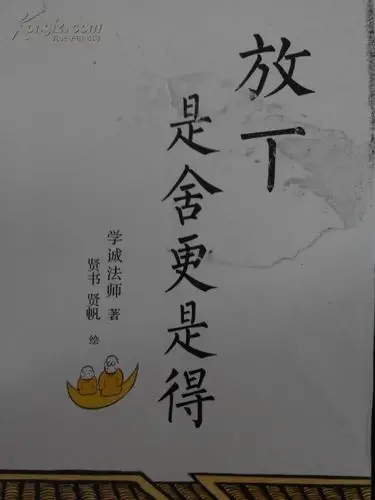 放下
是舍更是得
学诚法师 著
贤书 贤帆 绘